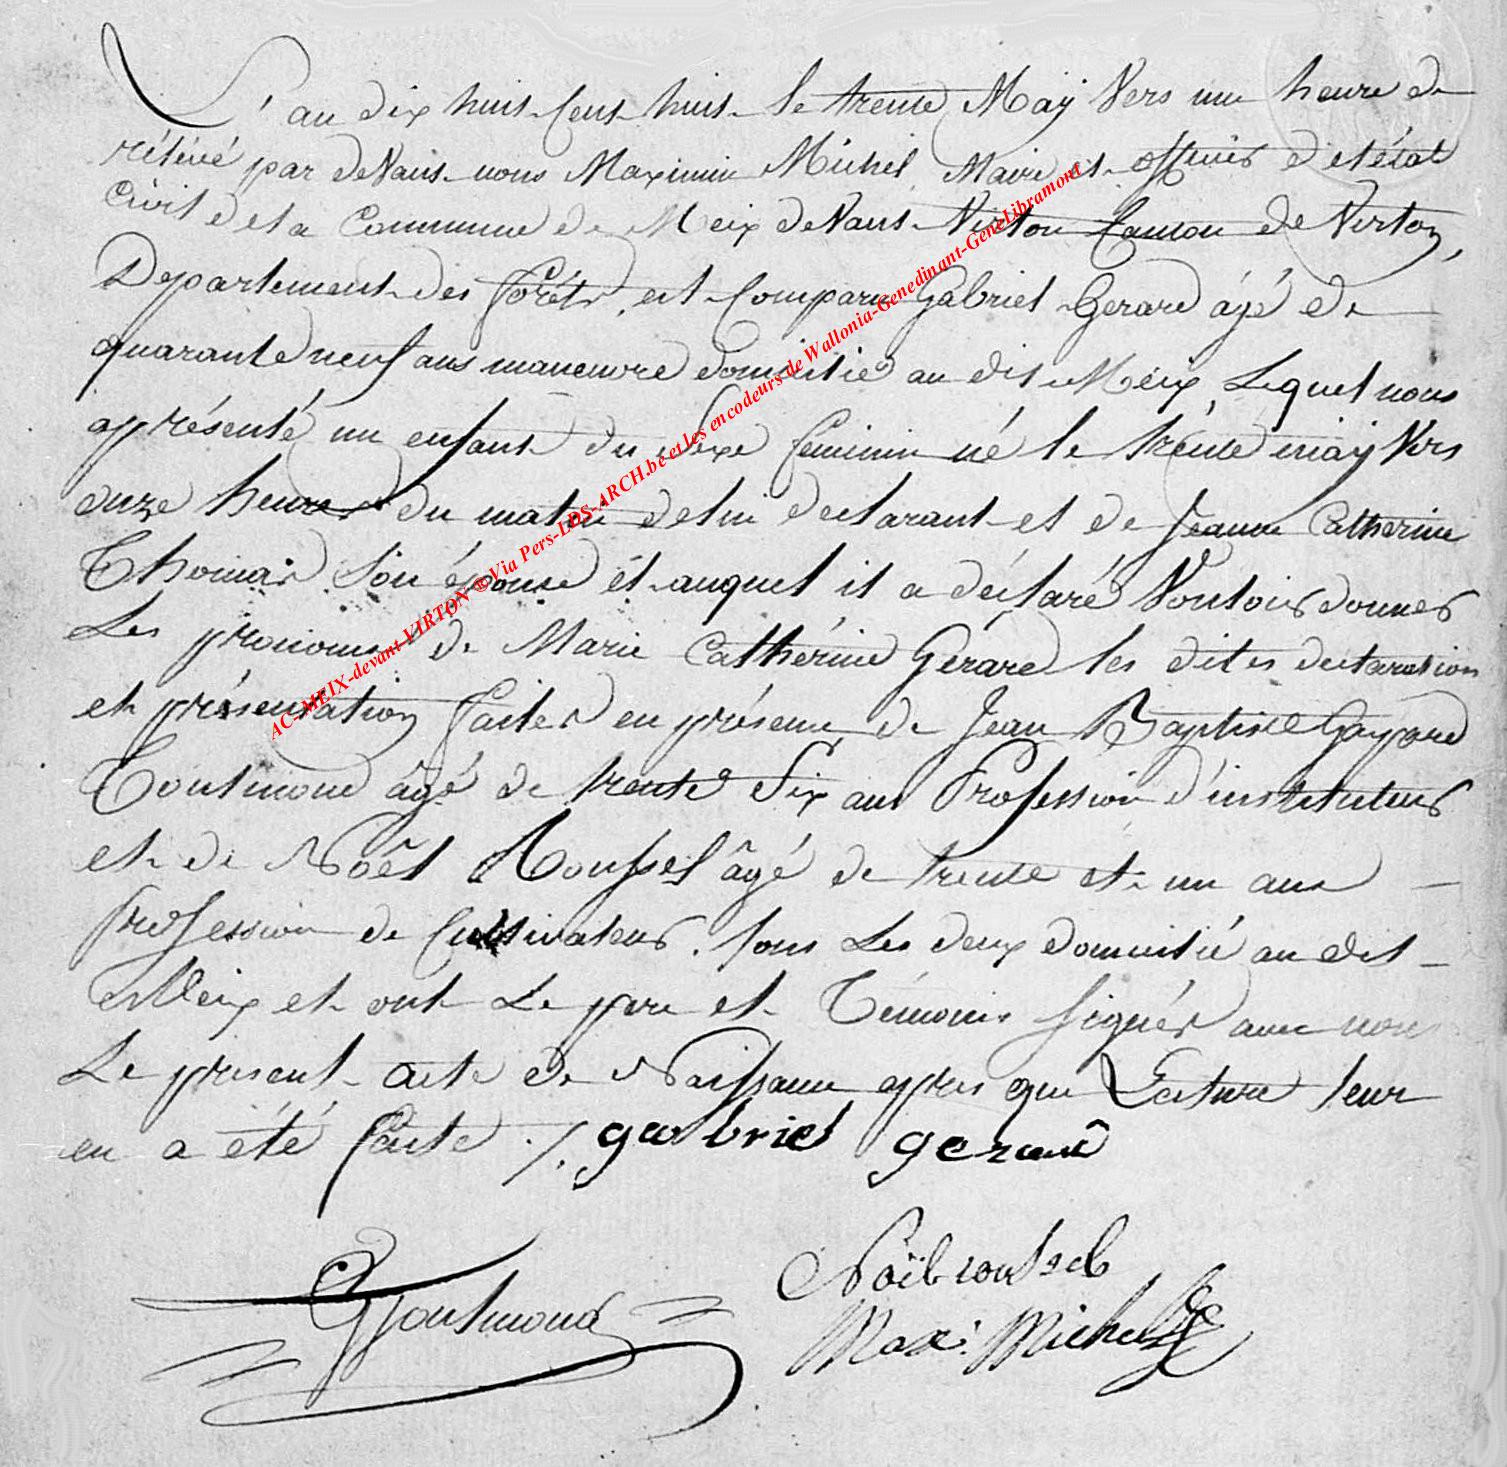 L'an dix huit Cent huit le trente Maÿ Vers une heure de
rélévé par deVant nous Maximin Michel Maire et officier de l'état
Civil de la Commune de Meix deVant Virton Canton de Virton,
Departement des Forêts, est Comparu Gabriel Gerard âgé de
quarante neuf ans maneuvre domicilié au dit Meix, Lequel nous
a présenté un enfant du Sexe féminin né le trente maÿ Vers
onze heures du matin de lui declarant et de Jeanne Catherine
Thomas Son épouse et auquel il a déclaré Vouloir donner
Les prenoms de Marie Cathérine Gérard les dites declaration
et présentation faites en présence de Jean Baptiste Gaspard
Toulmond âgé de trente Six ans Profession d'instituteur
et de Noêl Roussel âgé de trente et un ans
profession de Cultivateur. tous Les deux domicilié au dit
Meix et ont Le pere et Témoins signér avec nous
Le present acte de Naissance apres que Lecture leur
en a été faite ./. gabriel gerard
Noël rousel
Toulmond
Max: Michel
AC-MEIX-devant-VIRTON ® Via Pers-LDS-ARCH.be et les encodeurs de Wallonia-Genedinant-GeneLibramont